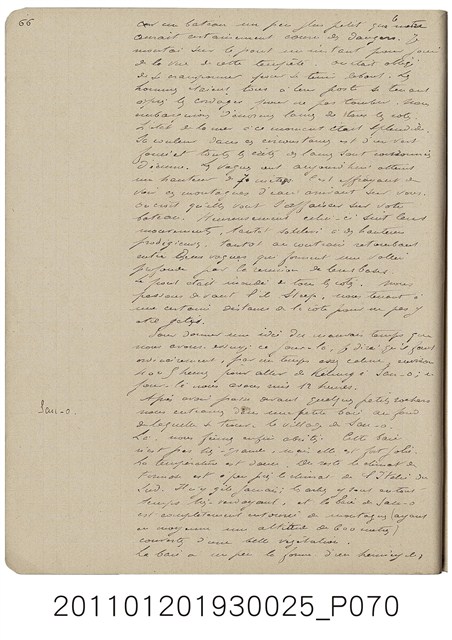 66
car un bateau un peu plus petit que le notre
aurait certainement couru des dangers. Je
montai sur le pont un instant pour jouir
de la vue de cette tempête. On était obligé
de se cramponner pour se tenir debout. Les
hommes étaient tous à leur poste se tenant
après les cordages pour ne pas tomber. Nous
embarquions d'énormes lames de tous les cotés.
L'effet de la mer à ce moment était splendide.
Sa couleur dans ces circonstances est d'un vert
foncé et toutes les crêtes des lames sont
d'écume. Les vagues ont aujourd'hui atteint
une hauteur de mètres. C'est effrayant de
voir ces montagnes d'eau arrivant sur vous.
On croit qu'elles vont s'affaisser sur votre
bateau. Heureusement celui-ci suit leurs
mouvements, tantôt soulevé à des hauteurs
prodigieuses, tantôt au contraire retombant
entre deux vagues qui forment une vallée
profonde par la réunion de leurs bases.
Le pont était inondé de tous les cotés. Nous
passons devant l'île Steep, nous tenant à
une certaine distance de la côte pour ne pas y
être jetés.
Pour donner une idée du mauvais temps que
nous avons essuyé ce jour-là, je dirai qu'il faut
ordinairement, par un temps assez calme, environ
heures pour aller de Kelung à Sau-o; ce
jour-là nous avons mis heures.
Après avoir passé devant quelques petits rochers
Sau-o.
nous entrons dans une petite baie au fond
de laquelle se trouve le village de Sau-o.
Là, nous fûmes enfin abrités. Cette baie
n'est pas très-grande, mais elle est fort jolie.
La température est douce. Du reste le climat de
Formose est à peu près le climat de l'Italie du
Sud. Il n'y gèle jamais; les arbres y sont en tout
temps très verdoyants, et la baie de Sau-o
est complètement entourée de montagnes (ayant
en moyenne une altitude de 600 mètres)
couvertes d'une belle végétation.
La baie a un peu la forme d'un hémicycle,
201101201930025_P070